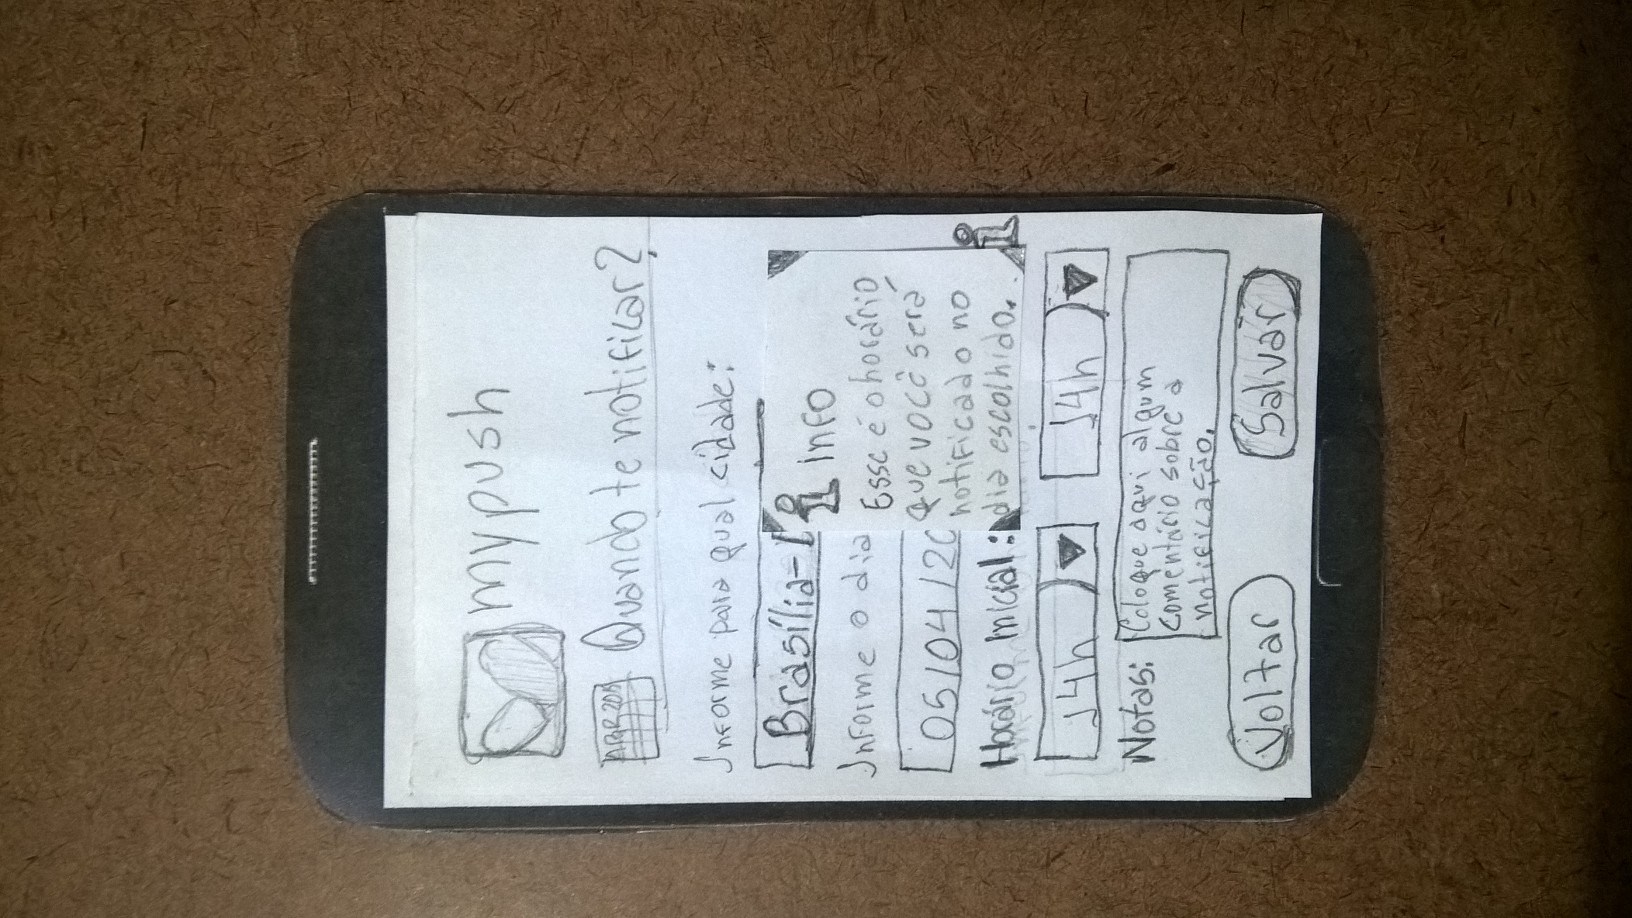 mypush
ABR 2015
Quando te notificar?
Informe para qual cidade:
Brasília-
Informe o dia
05/04/20
info
Esse é o horário
que você será
notificado no
dia escolhido.
Horário Inicial:
14h
14h
Notas:
Coloque aqui algum
comentário sobre a
notificação.
Voltar
Salvar